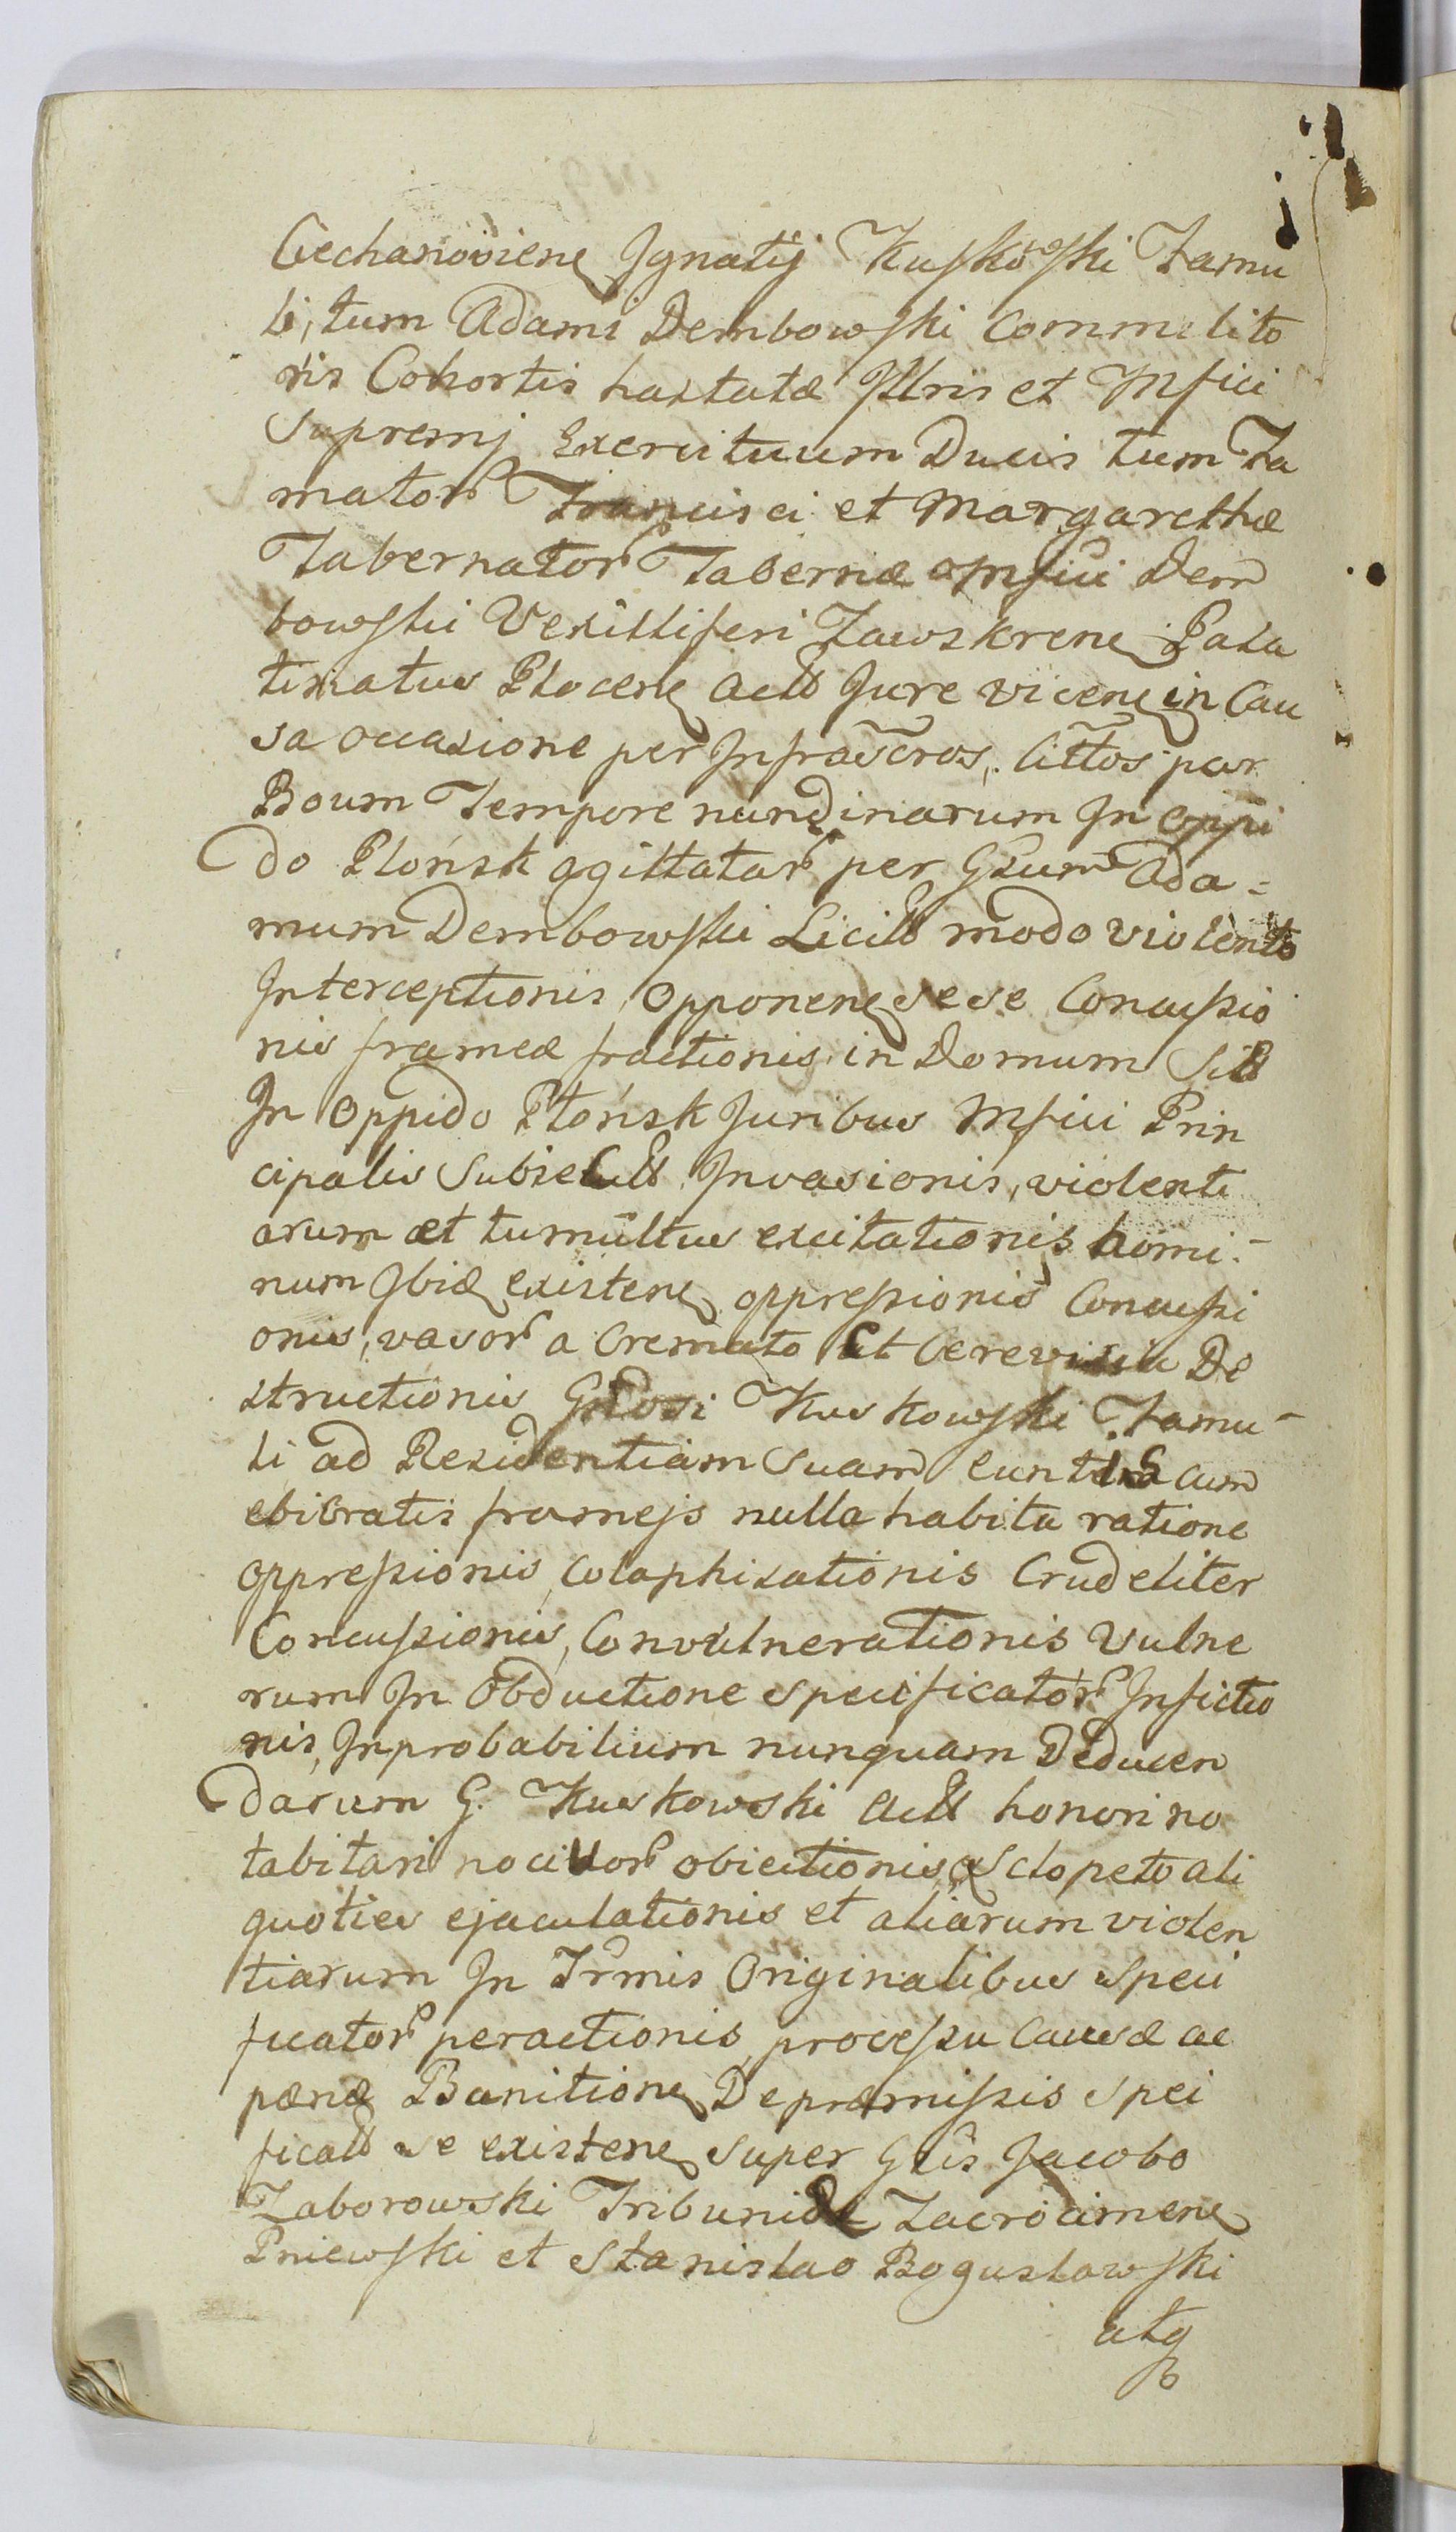 Ciechanoviens Ignatij Kuskowski Famu
li, tum Adami Dembowski Commilito
nis Cohortis hastatæ Illris et Mfici
Supremj Exercituum Ducis tum Fa
mator Francisci et Margarethæ
Tabernator Tabernæ Mfici Dem
bowski Vexilliferi Zawskrens Pala
tinatus Plocens actt Jure vicens in Cau
sa occasione per Infrascros. Cittos par
Boum Tempore nundinarum In Oppi
do Płońsk agittatar per Gsum Ada=
mum Dembowski Licitt modo violento
Interceptionis, Opponens sese Concussio
nis frameæ fractionis, in Domum Sitt
In Oppido Płońsk Juribus Mfici Prin
cipalis Subiectt Invasionis, violenti
arum et tumultus excitationis homi-
num Ibidq existens oppressionis Concussi
onis, vasor a Cremato et Cerevisia De
structionis Gnosi Kuskowski Famu-
li ad Residentiam Suam euntis cum
ebibratis framejs nulla habita ratione
oppressionis, Colaphisationis Crudeliter
Concussionis, Convulnerationis Vulne
rum In Obductione specificator Inflictio
nis, Improbabilium nunquam Deducen
darum G. Kuskowski actt honori no
tabilari nocivor obiectionis, ex Sclopeto ali
quoties ejaculationis et aliarum violen
tiarum In Trmis Originalibus speci
ficator peractionis, processu Causæ ac
pænæ Banitions De præmissis speci
ficatt se existens super Gsis Jacobo
Zaborowski Tribunide Zacrocimens
Pniewski et Stanislao Bogusławski
atq